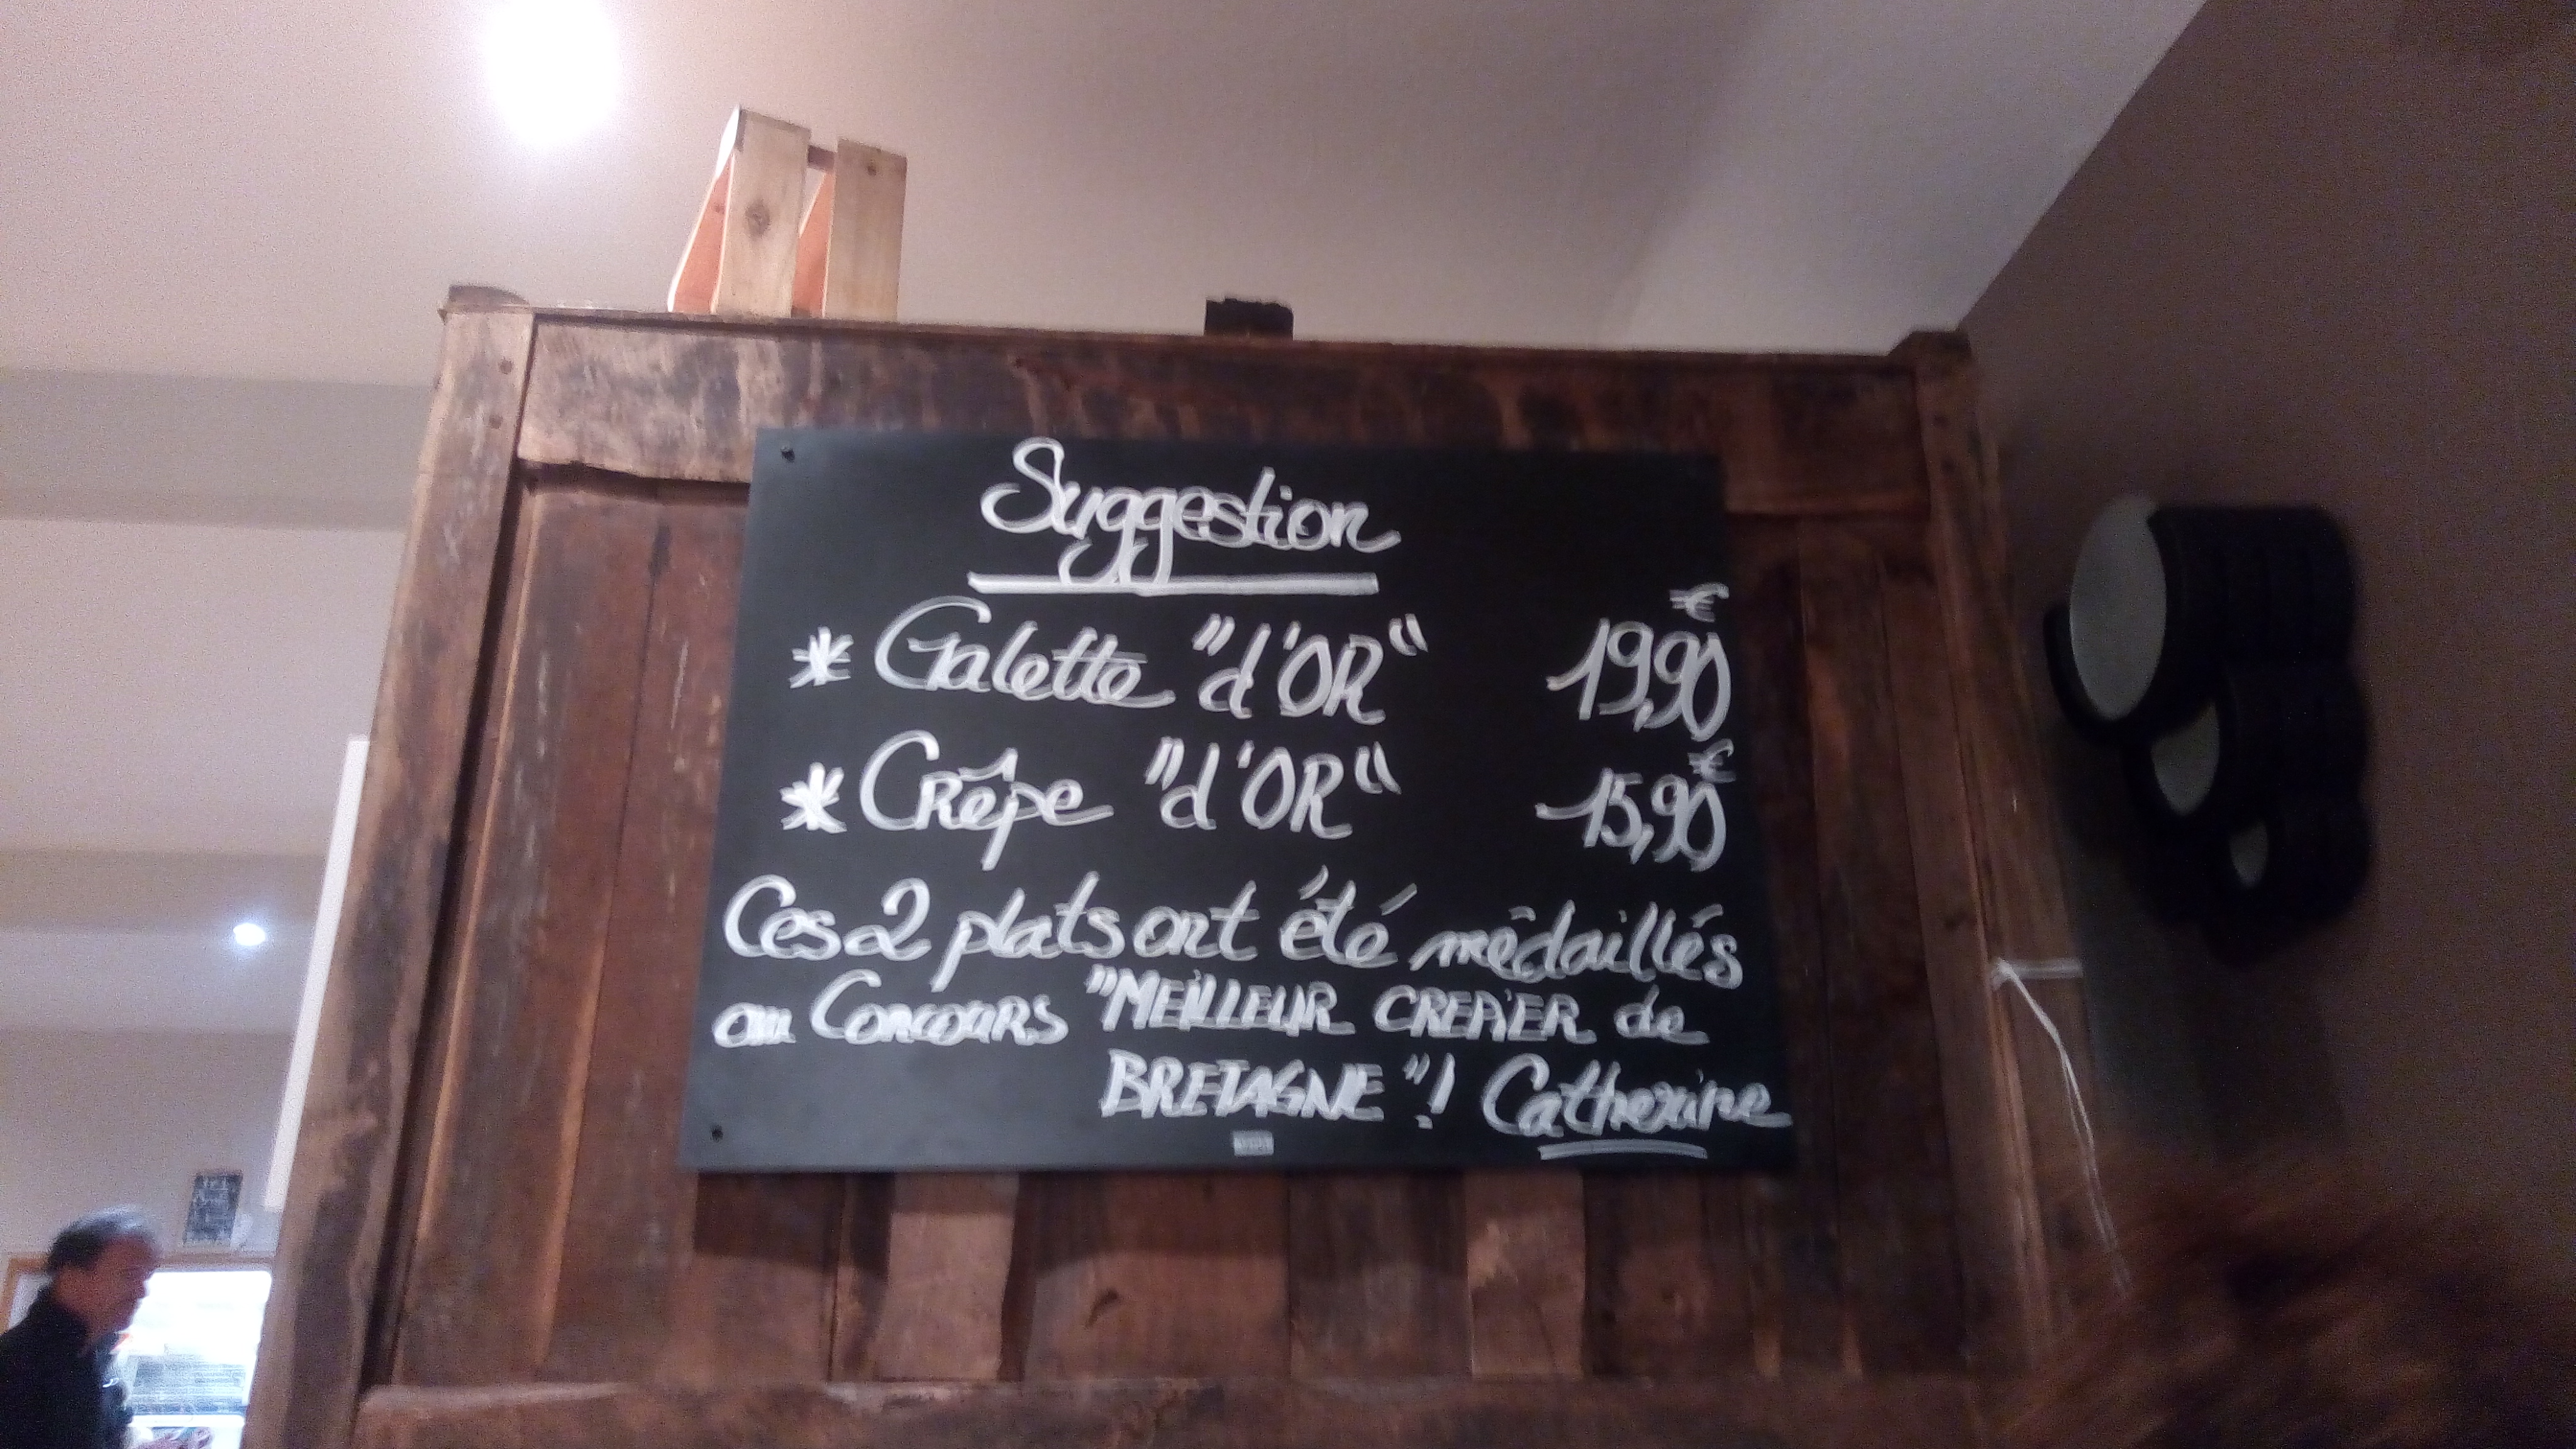 Suggestion
* Galette "d'OR" 19,90 €
* Crêpe "d'OR" 15,90 €
Ces 2 plats ont été médaillés
au Concours "MEILLEUR CREPIER de
BRETAGNE"! Catherine